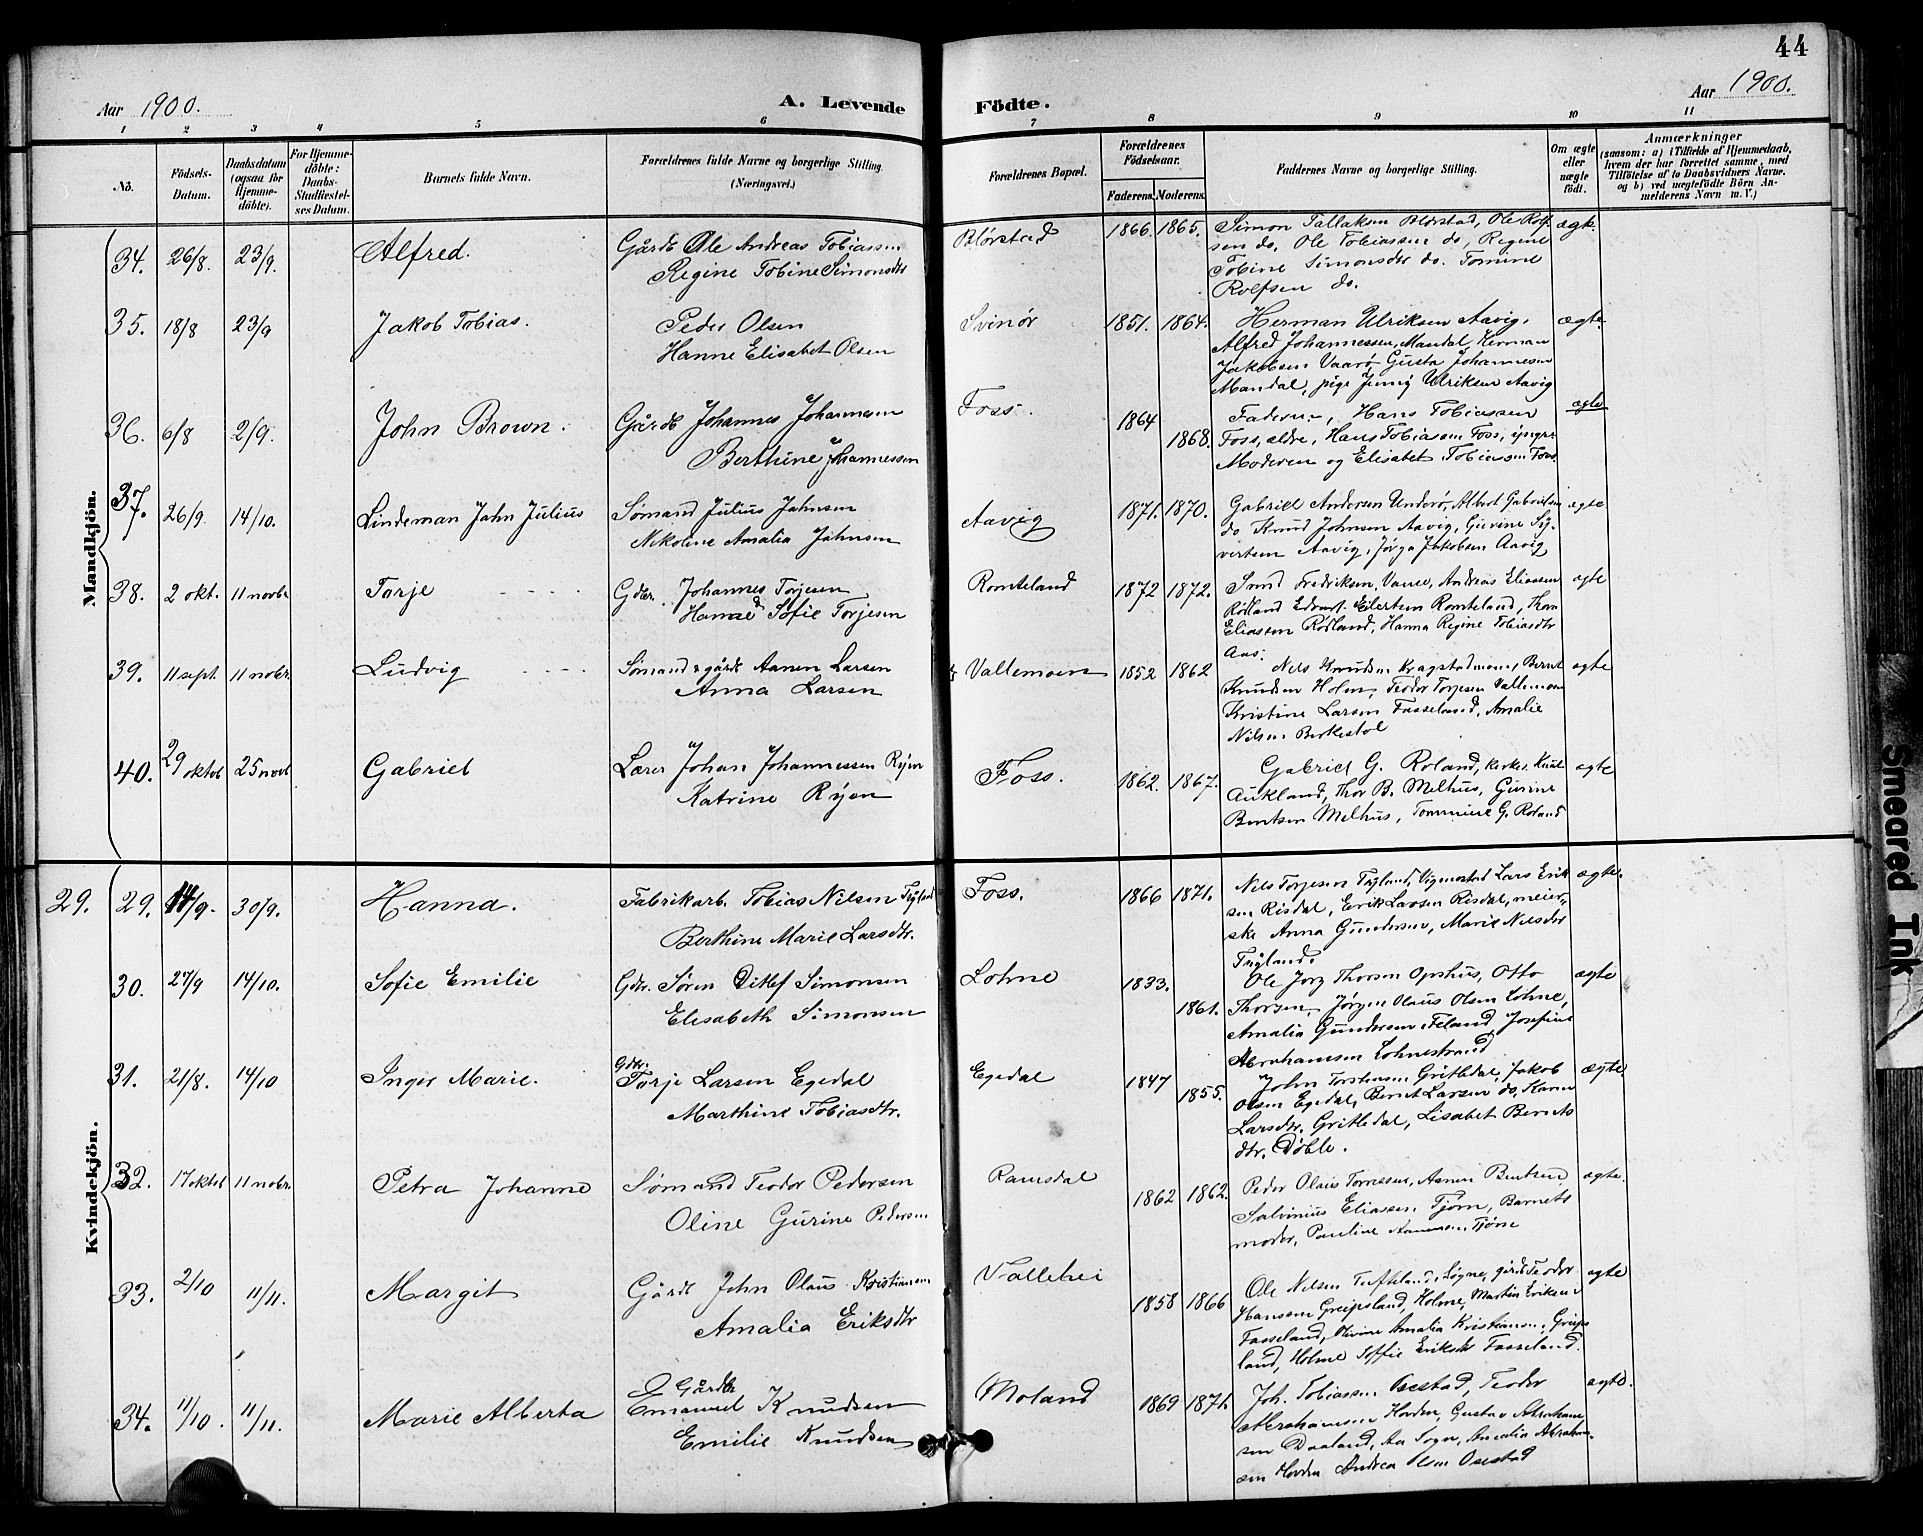 44
Aar 1900.
A. Levende Födte.
Aar 1900.
1 2 3 4 5 6 7 8 9 10 11
No.
Födsels-Datum.
Daabsdatum (ogsaa for Hjemme-döbte).
For Hjemme-döbte: Daabs-Stadfæstel-ses Datum.
Barnets fulde Navn.
Forældrenes fulde Navne og borgerlige Stilling. (Næringsvei.)
Forældrenes Bopæl.
Forældrenes Födselsaar.
Faderens. Moderens.
Faddernes Navne og borgerlige Stilling.
Om ægte eller uægte födt.
Anmærkninger
(saasom: a) i Tilfælde af Hjemmedaab,
hvem der har forrettet samme, med
Tilföielse af to Daabsvidners Navne.
og b) ved uægtefödte Börn An-
melderens Navn m. V.)
Mandkjön.
34. 26/8. 23/9. Alfred. Gårdb Ole Andreas Tobiassen
Regine Tobine Simonsdtr
Blörstad 1866. 1865. Simon Tallaksen Blörstad, Ole Rolf- ægte
sen do, Ole Tobiassen do, Regine
Tobine Simonsdtr do. Tomine
Rolfsen do.
35. 18/8 23/9 Jakob Tobias. Peder Olsen
Hanne Elisabet Olsen
Svinör 1851. 1864. Herman Ulriksen Aavig, ægte.
Alfred Johannessen, Mandal, Herman
Jakobsen Vaarö, Gusta Johannesen
Mandal, pige Jenny Ulriksen Aavig
36. 6/8 2/9. John Brown. Gårdb Johannes Johannesen
Berthine Johannessen
Foss. 1864 1868. Faderen, Hans Tobiassen ægte
Foss, ældre, Hans Tobiassen Foss, yngre
Moderen og Elisabet Tobiassen Foss
37. 26/9. 14/10. Lindeman John Julius Sömand Julius Johnsen
Nikoline Amalia Johnsen
Aavig 1871. 1870. Gabriel Andersen Underö, Albert Gabrielsen ægte
do Knud Johnsen Aavig, Gurine Sy-
vertsen Aavig, Jörga Jakobsen Aavig
38. 2 okt. 11 novbr Torje Gdbr. Johannes Torjesen
Hanne Sofie Torjesen
Romteland 1872 1872. Fredriksen, Vanse, Andreas Eliassen ægte
Rödland Edvart Eilertsen Romteland, Thom
Eliassen Rödland, Hanna Regine Tobiasdtr
Aas.
39. 11 sept 11 nobr Ludvig Sömand & gårdb Aanen Larsen
Anna Larsen
Vallemoen 1852 1862 Nels Knudsen Kragstadmoen, Bernt ægte
Knudsen Holm, Teodor Torjesen Vallemoen
Kristine Larsen Fasseland, Amalie
Nilsen Birkestöl
40. 29 oktob 25 novb Gabriel Lærer Johan Johannessen Ryen
Katrine Ryen
Foss. 1862. 1867. Gabriel G. Roland, kirkes. Knut ægte
Aukland, Thor B. Melhus, Gurine
Berntsen Melhus, Tommine G. Roland
Kvindekjön.
29. 29. 14/9. 30/9. Hanna. Fabrikarb. Tobias Nilsen Tryland
Berthine Marie Larsdtr.
Foss. 1866 1871. Nils Torjesen Tryland, Vigmostad Lars Erik- ægte.
sen Risdal, Erik Larsen Risdal, meier-
ske Anna Gundersen, Marie Nilsdtr
Tryland.
30. 27/9 14/10. Sofie Emilie Gdbr. Sören Ditlef Simonsen
Elisabeth Simonsen
Lohne 1833. 1861. Ole Jorg Thorsen Opshus, Otto ægte
Thorsen, Jörgen Olaus Olsen Lohne,
Amalia Gundersen Feland, Josefine
Abrahamsen Lohnestrand
31. 21/8. 14/10 Inger Marie. Gdbr. Torje Larsen Egedal
Marthine Tobiasdtr.
Egedal 1847 1855. John Torstensen Gritledal, Jakob ægte.
Olsen Egedal, Bernt Larsen do, Karen
Larsdtr. Gritledal, Lisabet Bernts
dtr. Döble.
32. 17 oktob 11 nobr. Petra Johanne Sömand Teodor Pedersen
Oline Gurine Pedersen
Ramsdal 1862 1862. Peder Olaus Tomessen, Aanen Berntsen ægte.
Salvinius Eliassen Tjörn, Barnets
moder, Pauline Aanensen, Tjörn
33. 2/10 11/11. Margit Gårdb John Olaus Kristiansen
Amalia Eriksdtr
Vallehei 1858 1866 Ole Nilsen Tufteland, Søgne, gårdb Teodor ægte
Hansen Greipsland, Holme, Martin Eriksen
Fasseland, Olivine Amalia Kristiansen, Greips
land, Holme Soffie Eriksdtr Fasseland.
34. 11/10. 11/11. Marie Alberta Gårdbr Emanuel Knudsen
Emilie Knudsen
Moland 1869 1871. Joh. Tobiassen Osestad, Teodor ægte.
Abrahamsen Horden, Gustav Abraham-
sen Daaland, Aa Sogn, Amalia Abraham-
sen Horden Andrea Olsen Osestad
Smeared Ink